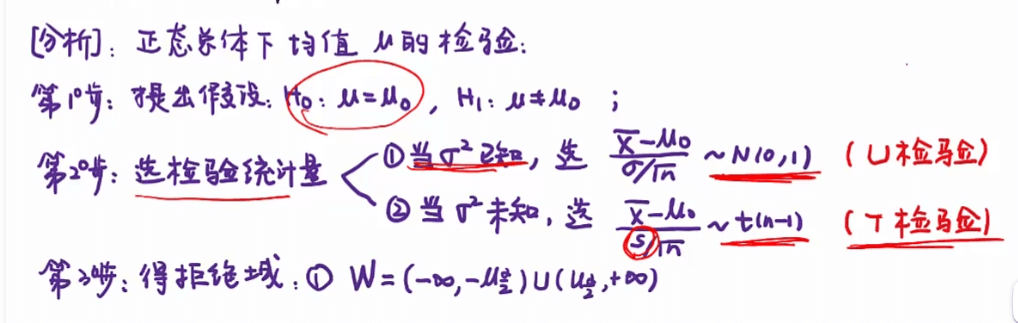 [分析]: 正态总体下均值 μ 的检验:
第1步: 提出假设: H₀: μ=μ₀, H₁: μ≠μ₀ ;
第2步: 选检验统计量 ① 当 σ² 已知, 选 (x̄-μ₀)/(σ/√n) ~ N(0,1) (U检验)
② 当 σ² 未知, 选 (x̄-μ₀)/(S/√n) ~ t(n-1) (T检验)
第3步: 得拒绝域: ① W=(-∞,-μ_{α/2})∪(μ_{α/2},+∞)